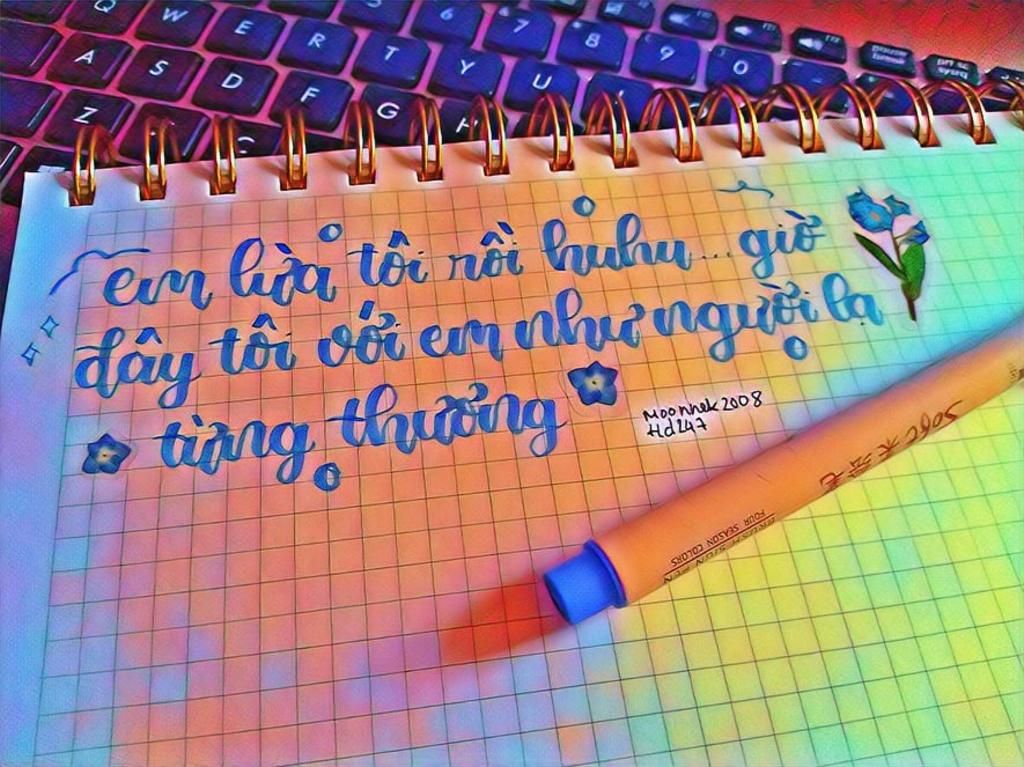 Q W E R T 6 7 8 9 0
A S D F G H Y U
Z C
em lừa tôi rồi huhu... giờ
đây tôi với em như người lạ
từng thương
Moonhek2008
Hd247
FOUR SEASON COLORS
BRUSH SIGN PEN